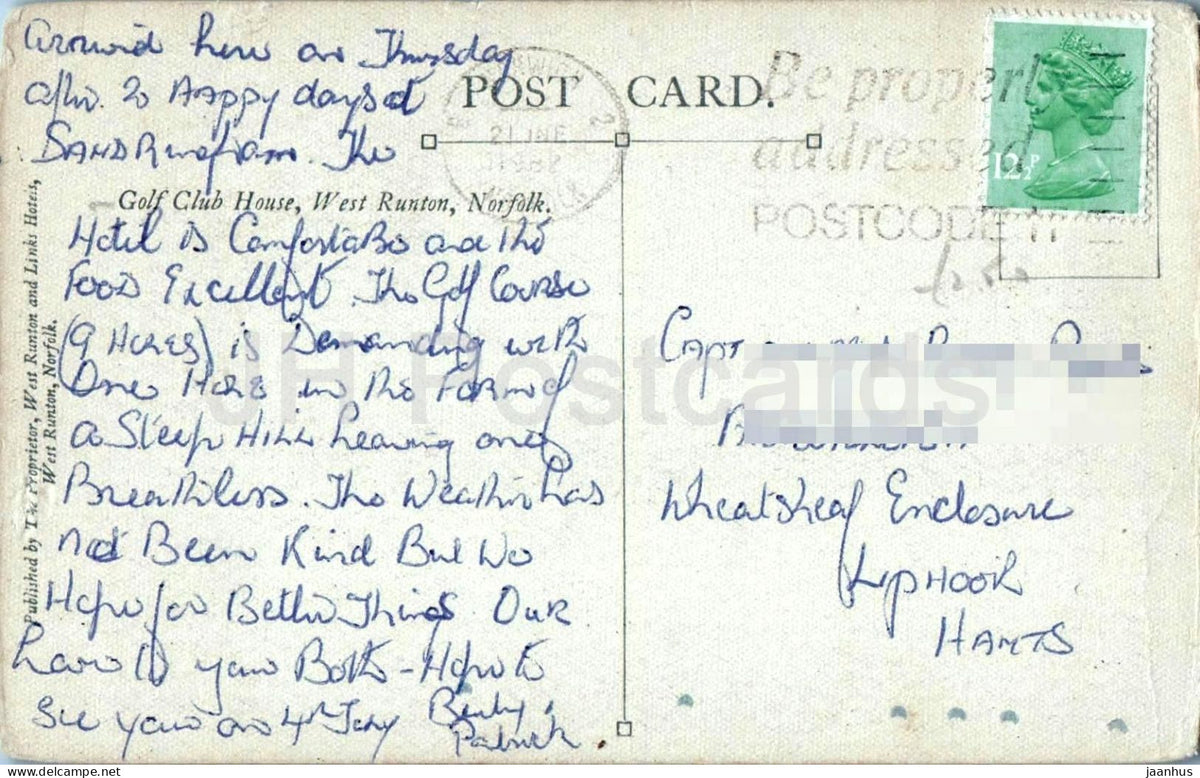 Arrived here on Thursday
after 20 Happy days at
SANDRingham. The
POST CARD.
Golf Club House, West Runton, Norfolk.
Hotel is Comfortable and the
Food Excellent. The Golf Course
(9 HOLES) is Demanding with
One Hole in the Form of
a Steep HILL leaving one
Breathless. The Weather has
not Been Kind But We
Hope for Better Things. Our
love to you Both - Hope to
see you on 4th July
Patrick
Published by The Proprietor, West Runton and Links Hotels,
West Runton, Norfolk.
Be properly
addressed
POSTCODE IT
21 JNE
12½P
CAPT
Wheatsheaf Enclosure
LIPHOOK
HANTS
JH Postcards
jaanhus